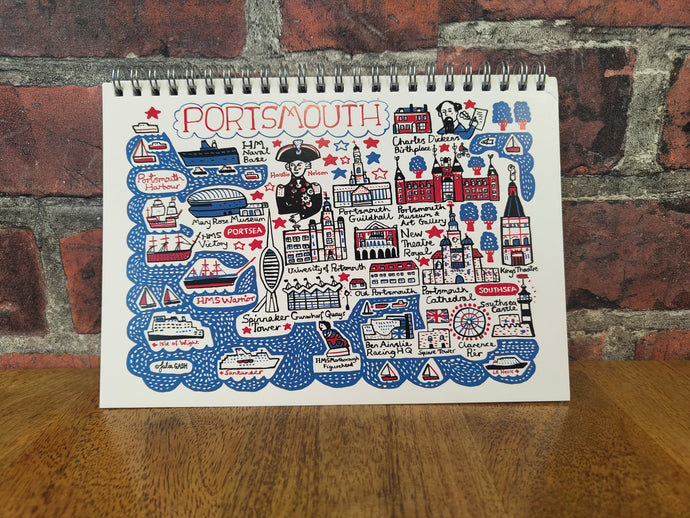 PORTSMOUTH
HM
Naval
Base
Charles Dickens
Birthplace
Portsmouth
Harbour
Horatio Nelson
Mary Rose Museum
Portsmouth
Guildhall
Portsmouth
Museum &
Art Gallery
HMS
Victory
PORTSEA
New
Theatre
Royal
Kings Theatre
University of Portsmouth
HMS Warrior
Old Portsmouth
Portsmouth
Cathedral
SOUTHSEA
Southsea
Castle
Spinnaker
Tower
Gunwharf Quays
Isle of Wight
HMS Marlborough
Figurehead
Ben Ainslie
Racing HQ
Square Tower
Clarence
Pier
Santander
Le Havre